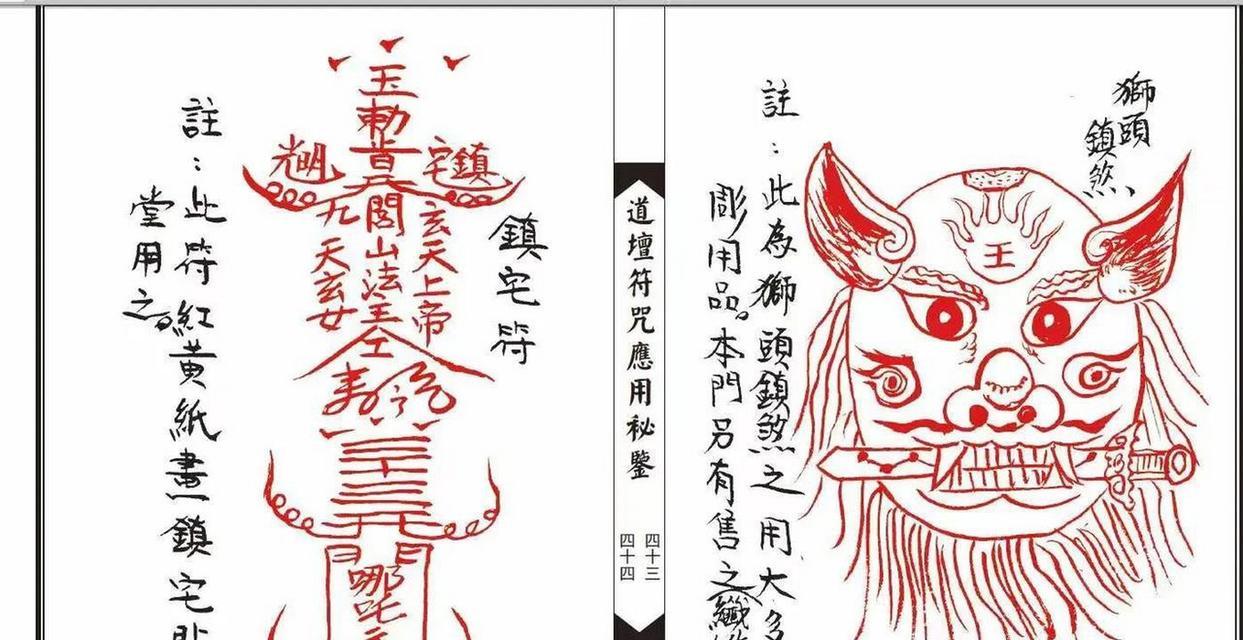 獅頭
鎮煞
王
註：此為獅頭鎮煞之用大多
彫用品。本門另有售之纖
道壇符咒應用秘鑒
四十三
四十四
鎮宅符
玉勅
鎮宅
光明
玄天上帝
閭山法主
九天玄女
哪吒
註：此符紅黃紙畫鎮宅
堂用之。